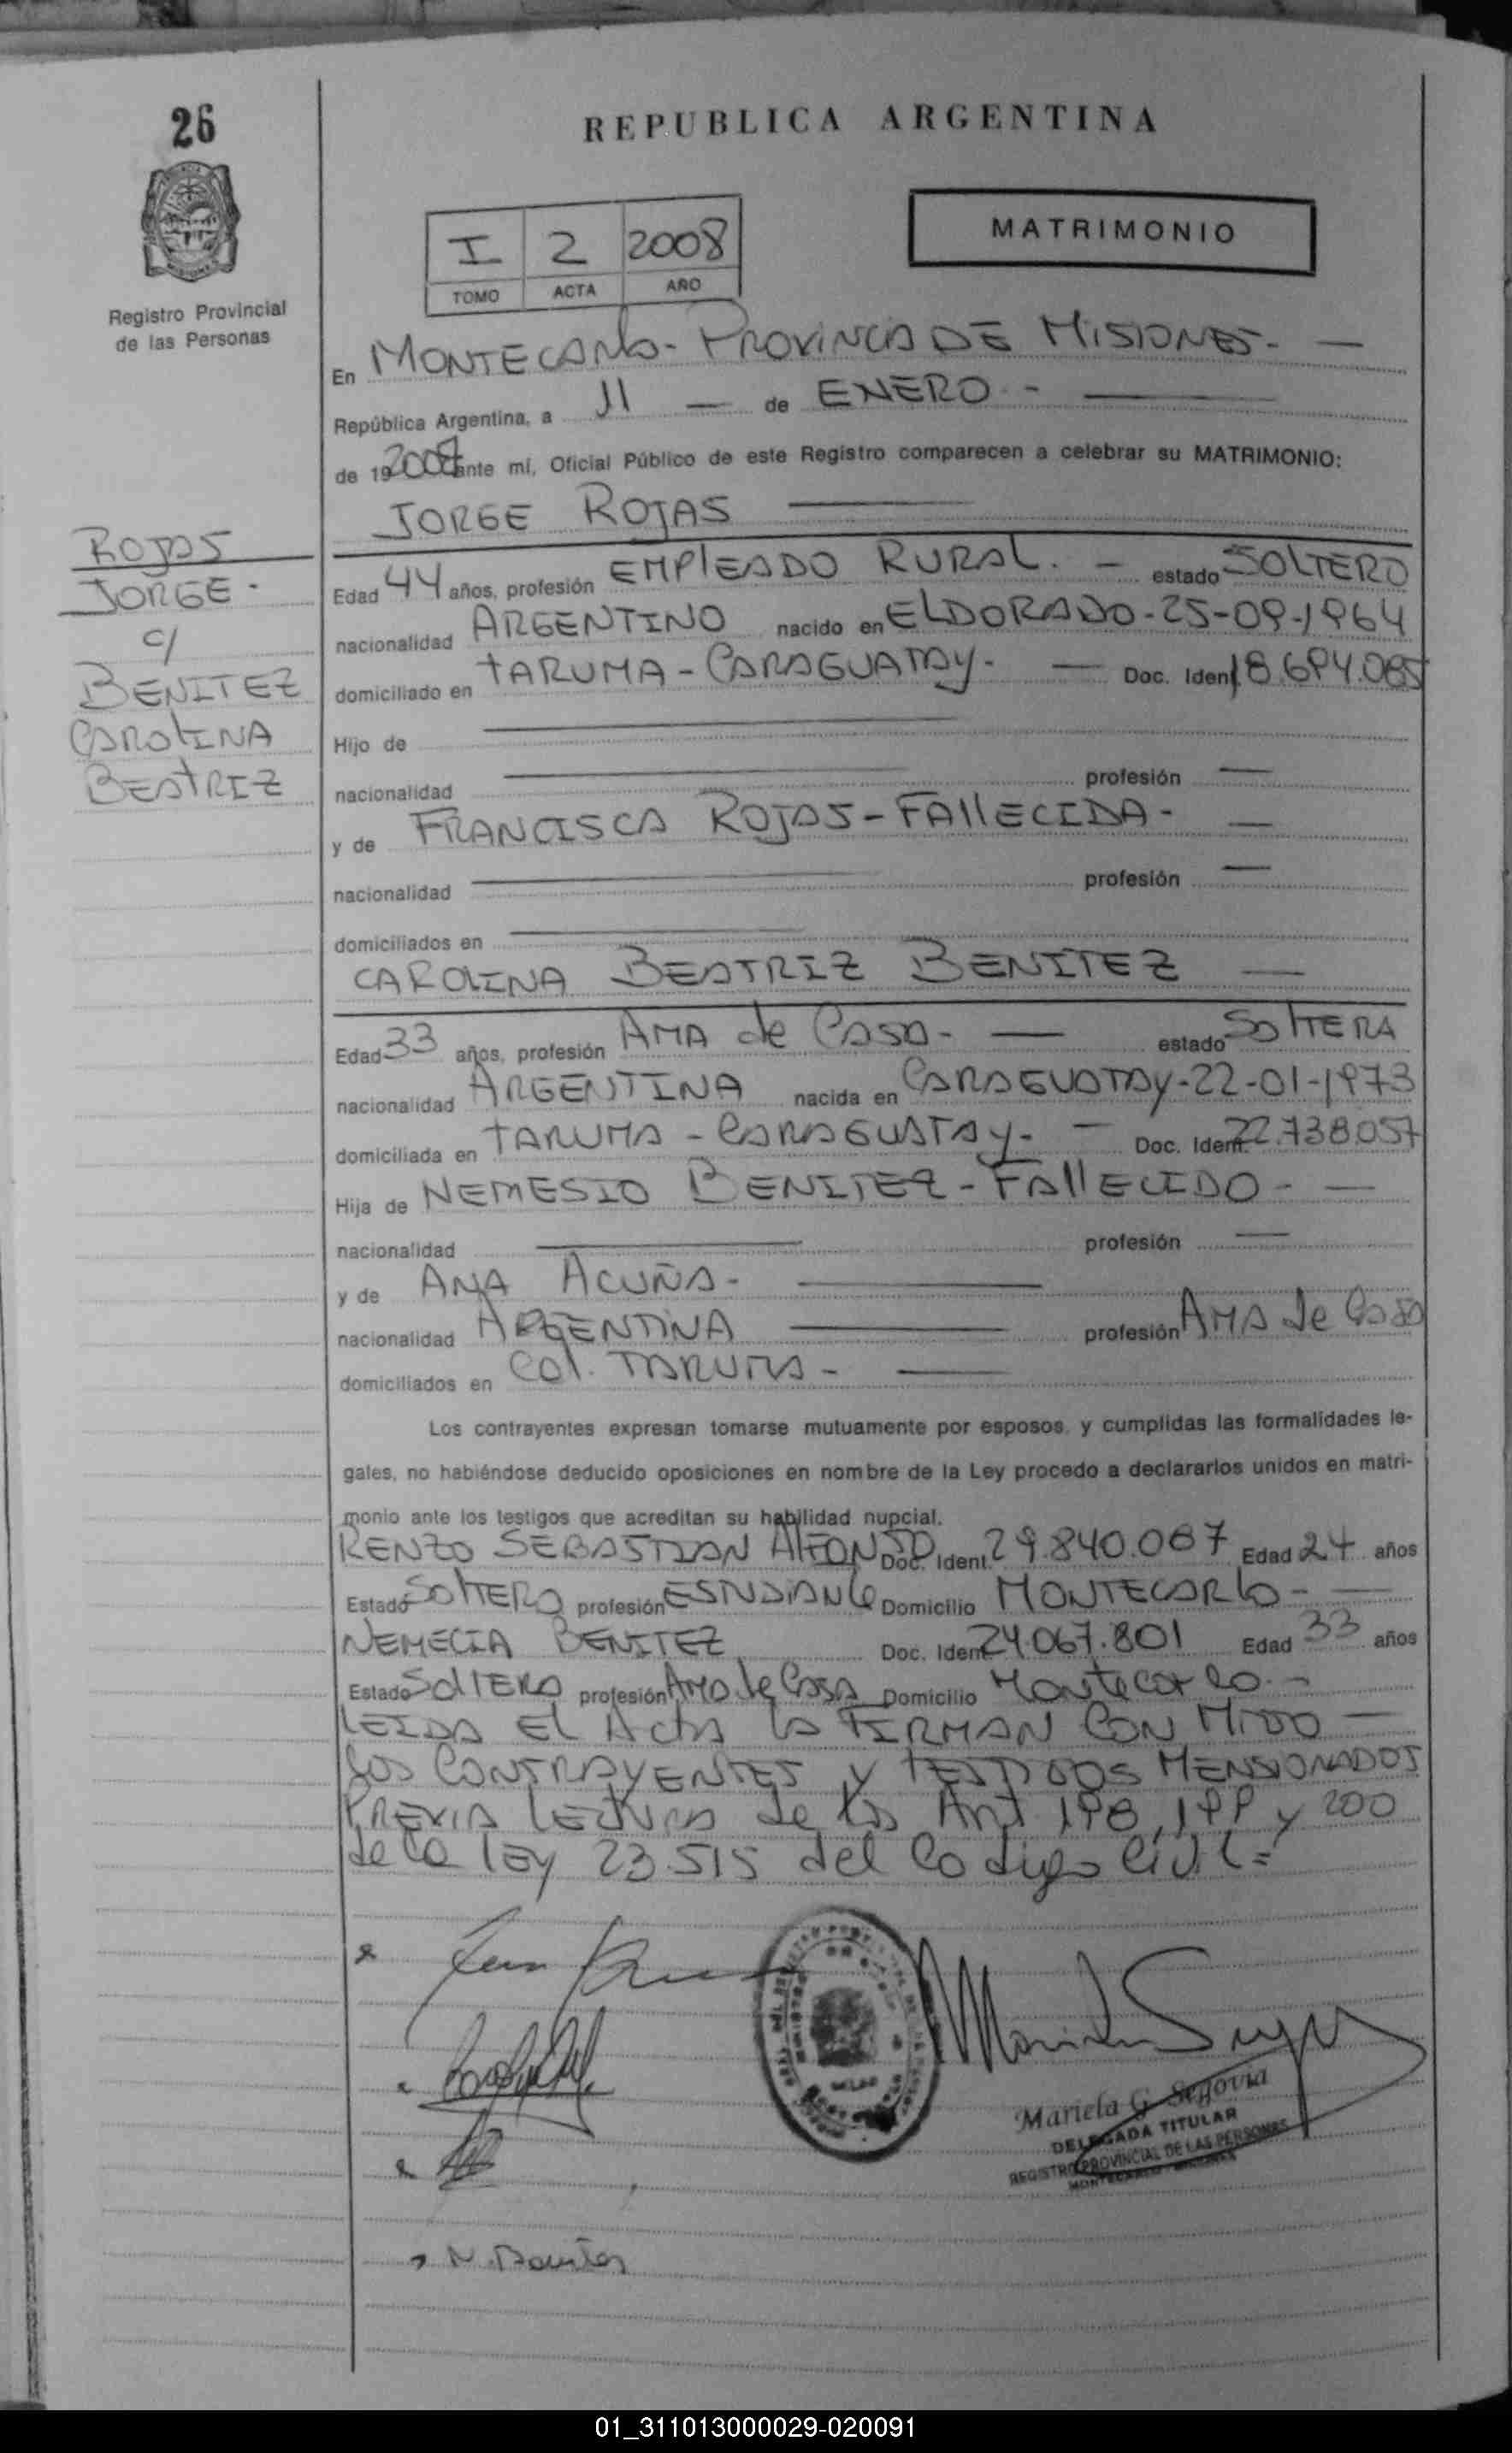 26
REPUBLICA ARGENTINA
I 2 2008
TOMO ACTA AÑO
MATRIMONIO
Registro Provincial
de las Personas
En MONTECARLO- PROVINCIA DE MISIONES- —
República Argentina, a 11 — de ENERO - —
de 19 2008 ante mí, Oficial Público de este Registro comparecen a celebrar su MATRIMONIO:
JORGE ROJAS —
ROJAS
JORGE -
c/
BENITEZ
CAROLINA
BEATRIZ
Edad 44 años, profesión EMPLEADO RURAL. — estado SOLTERO
nacionalidad ARGENTINO nacido en ELDORADO-25-09-1964
domiciliado en TARUMA-CARAGUATAY- — Doc. Ident. 18.694.085
Hijo de —
nacionalidad — profesión —
y de FRANCISCA ROJAS-FALLECIDA- —
nacionalidad — profesión —
domiciliados en —
CAROLINA BEATRIZ BENITEZ —
Edad 33 años, profesión AMA de CASA- — estado SOLTERA
nacionalidad ARGENTINA nacida en CARAGUATAY-22-01-1973
domiciliada en TARUMA - CARAGUATAY- — Doc. Ident. 22.738.057
Hija de NEMESIO BENITEZ-FALLECIDO- —
nacionalidad — profesión —
y de ANA ACUÑA- —
nacionalidad ARGENTINA — profesión AMA de CASA
domiciliados en Col. TARUMA- —
Los contrayentes expresan tomarse mutuamente por esposos, y cumplidas las formalidades le-
gales, no habiéndose deducido oposiciones en nombre de la Ley procedo a declararlos unidos en matri-
monio ante los testigos que acreditan su habilidad nupcial.
RENZO SEBASTIAN ALFONSO Doc. Ident. 29.840.067 Edad 24 años
Estado SOLTERO profesión ESTUDIANTE Domicilio MONTECARLO- —
NEMECIA BENITEZ Doc. Ident. 24.067.801 Edad 33 años
Estado SOLTERA profesión AMA de CASA Domicilio Montecarlo. -
LEIDA EL ACTA LA FIRMAN CON MIGO —
LOS CONTRAYENTES y TESTIGOS MENSIONADOS
PREVIA LECTURA de los Art 198, 199 y 200
de la LEY 23.515 del Codigo Civil=
N. Benitez
Mariela G. Segovia
DELEGADA TITULAR
REGISTRO PROVINCIAL DE LAS PERSONAS
MONTECARLO - MISIONES
01_311013000029-020091